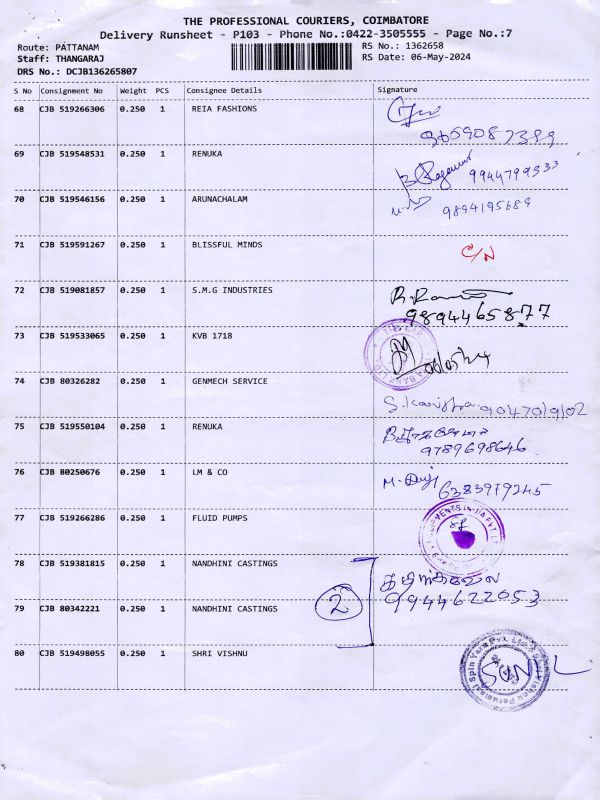 THE PROFESSIONAL COURIERS, COIMBATORE
Delivery Runsheet - P103 - Phone No.:0422-3505555 - Page No.:7
Route: PATTANAM
RS No.: 1362658
Staff: THANGARAJ
RS Date: 06-May-2024
DRS No.: DCJB136265807
S No Consignment No Weight PCS Consignee Details Signature
68 CJB 519266306 0.250 1 REIA FASHIONS
9659087399
69 CJB 519548531 0.250 1 RENUKA
9944799533
70 CJB 519546156 0.250 1 ARUNACHALAM
9894195689
71 CJB 519591267 0.250 1 BLISSFUL MINDS C/N
72 CJB 519081857 0.250 1 S.M.G INDUSTRIES
9894465877
73 CJB 519533065 0.250 1 KVB 1718
74 CJB 80326282 0.250 1 GENMECH SERVICE
75 CJB 519550104 0.250 1 RENUKA
9789698646
76 CJB 80250676 0.250 1 LM & CO
6383979245
77 CJB 519266286 0.250 1 FLUID PUMPS
78 CJB 519381815 0.250 1 NANDHINI CASTINGS
79 CJB 80342221 0.250 1 NANDHINI CASTINGS 2 9944622053
80 CJB 519498055 0.250 1 SHRI VISHNU